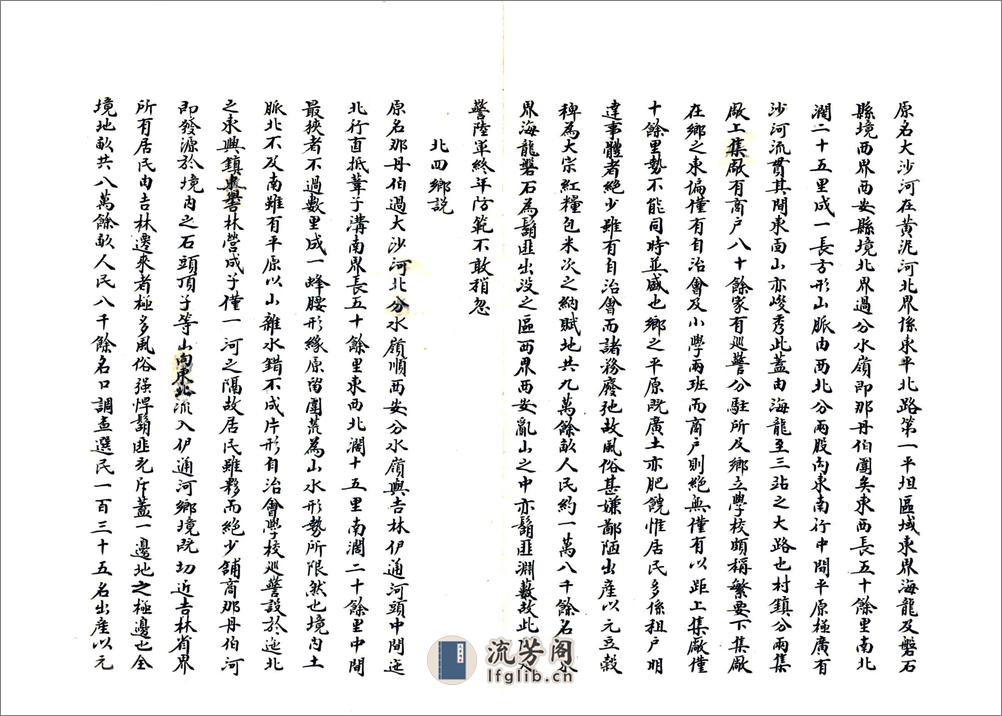 原名大沙河在黄泥河北界係東平北路第一平坦區域東界海龍及磐石
縣境西界西安縣境北界過分水嶺即那丹伯圍矣東西長五十餘里南北
濶二十五里成一長方形山脈由西北分兩股向東南行中間平原極廣有
沙河流貫其間東南山亦峻秀此蓋由海龍至三站之大路也村鎮分兩集
厰上集厰有商戶八十餘家有廵警分駐所及鄉立學校頗稱繁要下集厰
在鄉之東偏僅有自治會及小學兩班而商戶則絶無僅有以距上集厰僅
十餘里勢不能同時並盛也鄉之平原既廣土亦肥饒惟居民多係租戶明
達事體者絶少雖有自治會而諸務廢弛故風俗甚嫌鄙陋出產以元豆穀
稗為大宗紅糧包米次之納賦地共九萬餘畝人民約一萬八千餘名
界海龍磐石為鬍匪出没之區西界西安亂山之中亦鬍匪淵藪故此
警陸軍終年防範不敢稍忽
北四鄉説
原名那丹伯過大沙河北分水嶺順西安分水嶺與吉林伊通河頭中間迤
北行直抵葦子溝南界長五十餘里東西北濶十五里南濶二十餘里中間
最狹者不過數里成一蜂腰形緣原留圍荒為山水形勢所限然也境内土
脈北不及南雖有平原以山雜水錯不成片形自治會學校廵警設於迤北
之東興鎮東與磐林營成子僅一河之隔故居民雖夥而絶少舖商那丹伯河
即發源於境内之石頭頂子等山向東北流入伊通河鄉境既切近吉林省界
所有居民由吉林遷來者極多風俗强悍鬍匪充斥蓋一邊地之極邊也全
境地畝共八萬餘畝人民八千餘名口調查選民一百三十五名出產以元
流芳阁
lfglib.cn